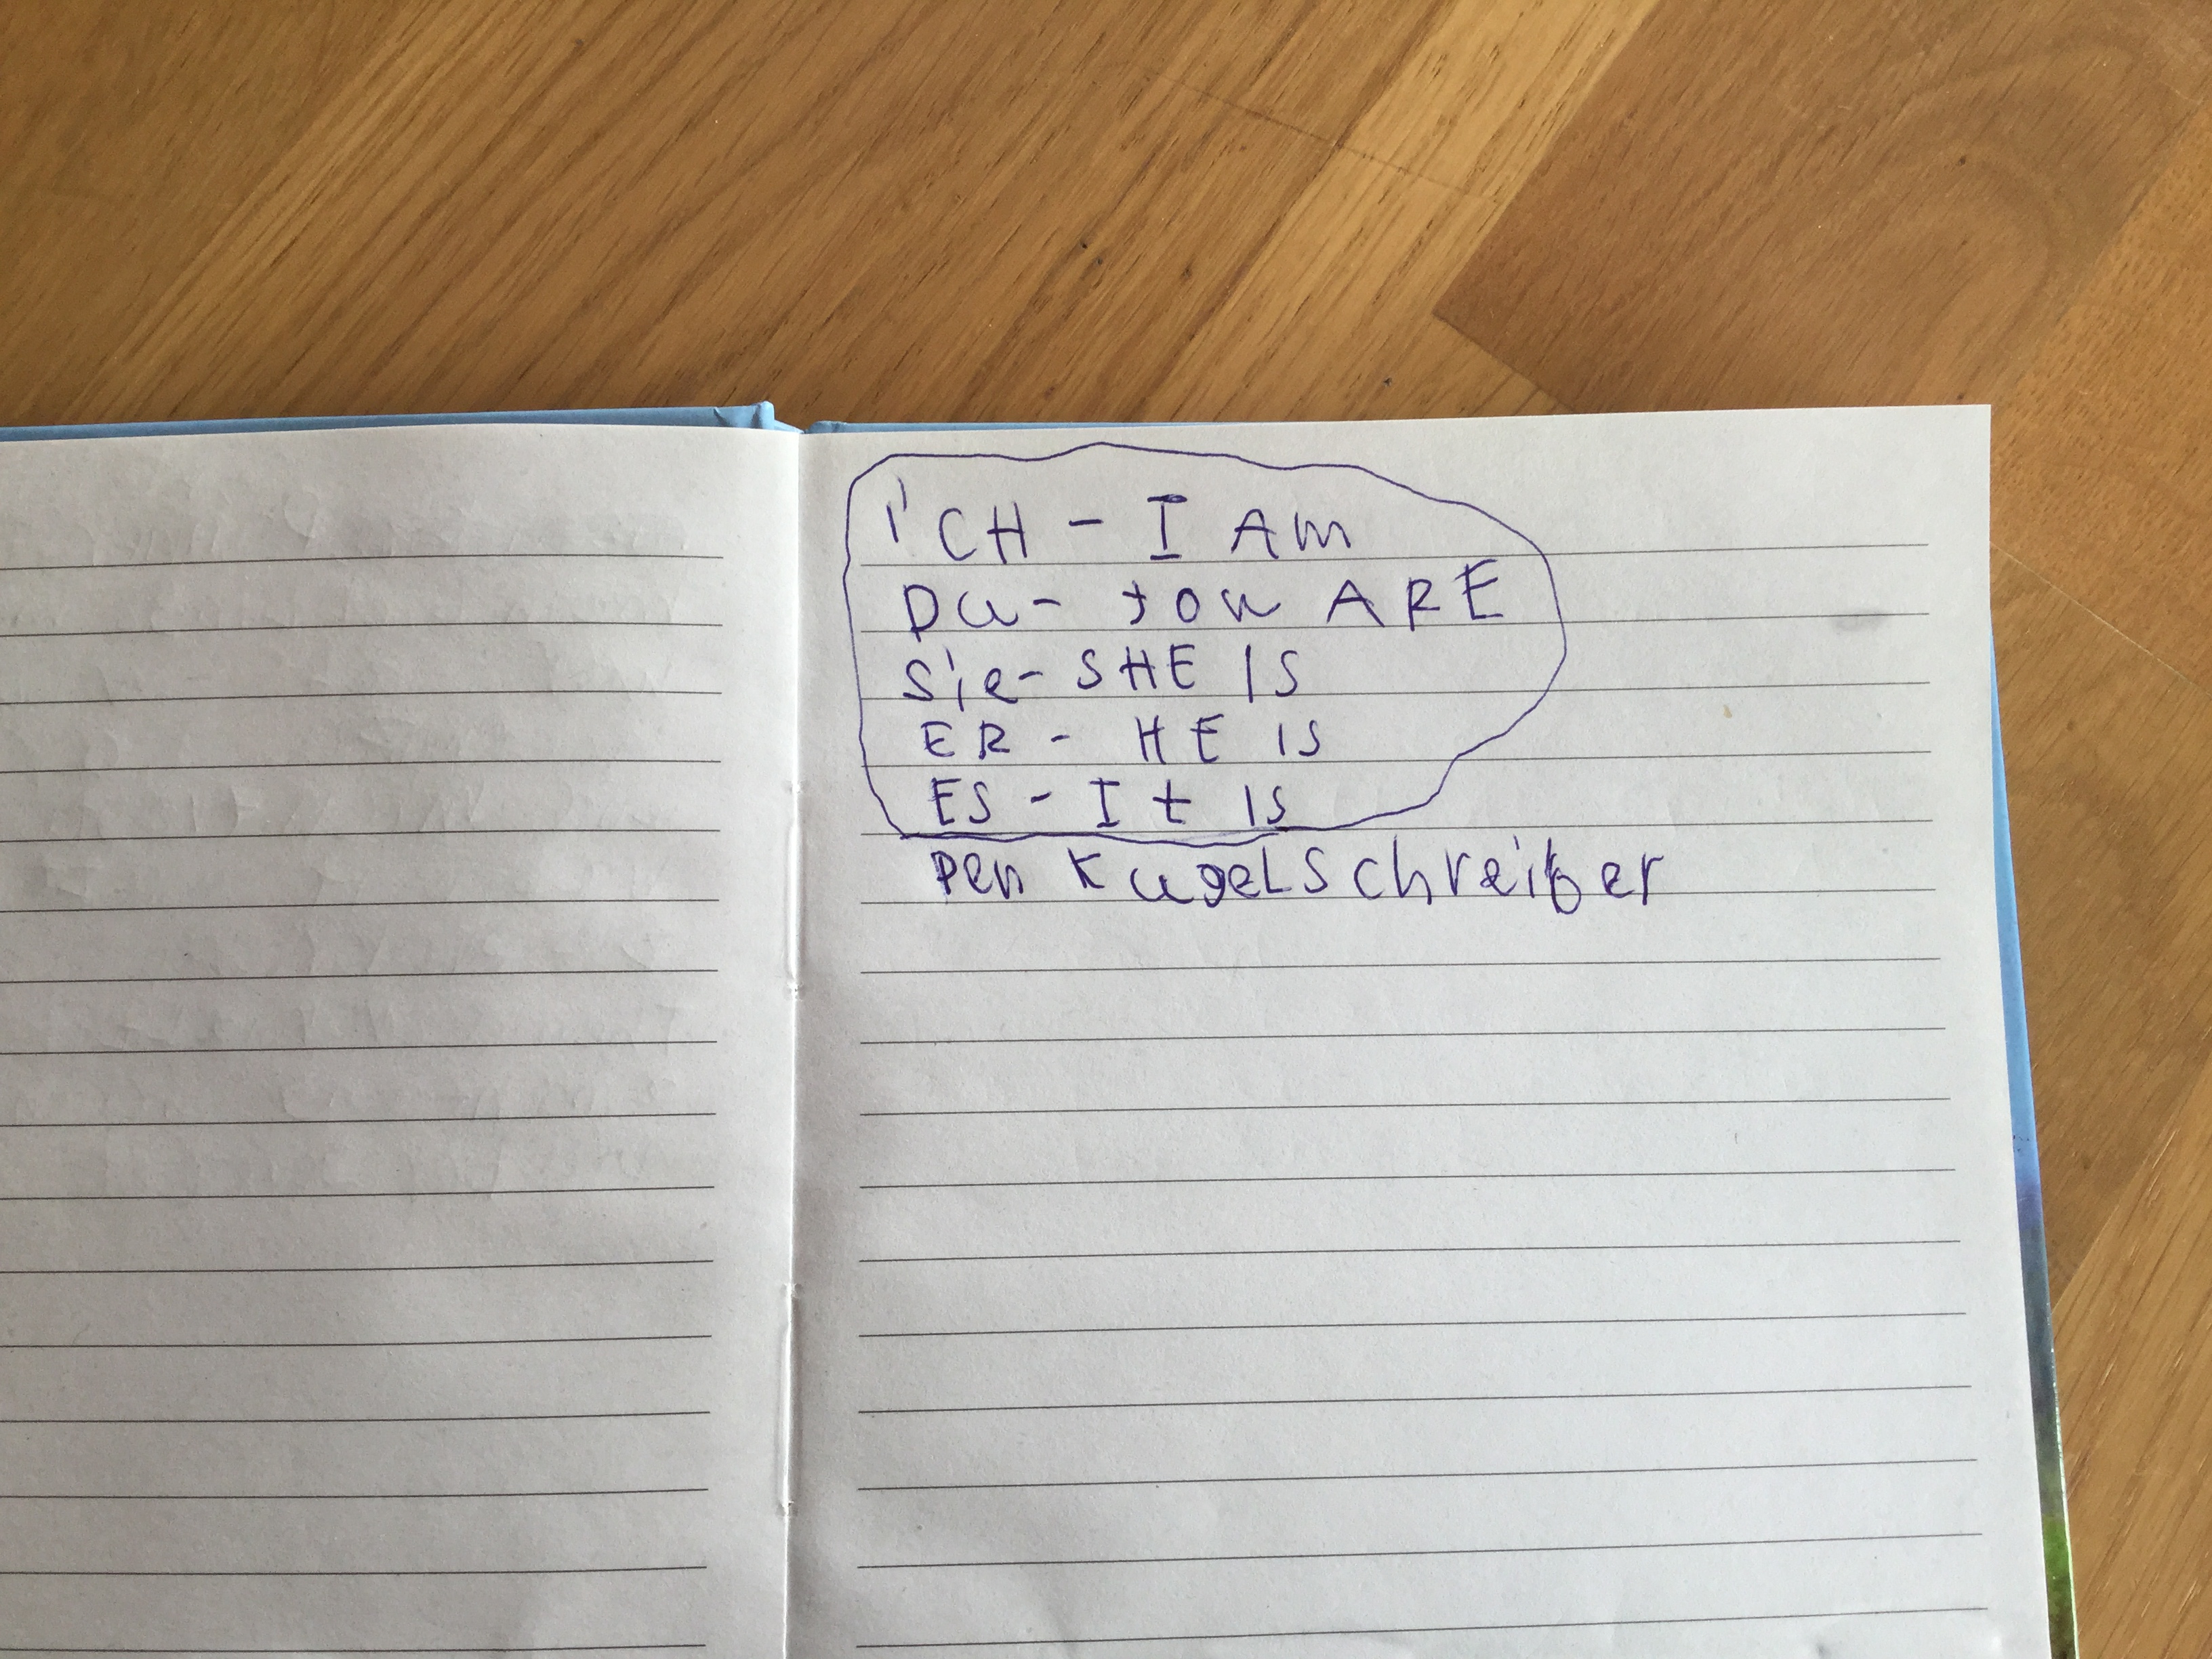 iCH - I Am
Du - you ARE
Sie - SHE IS
ER - HE IS
ES - It IS
Pen KugeLSchreiber